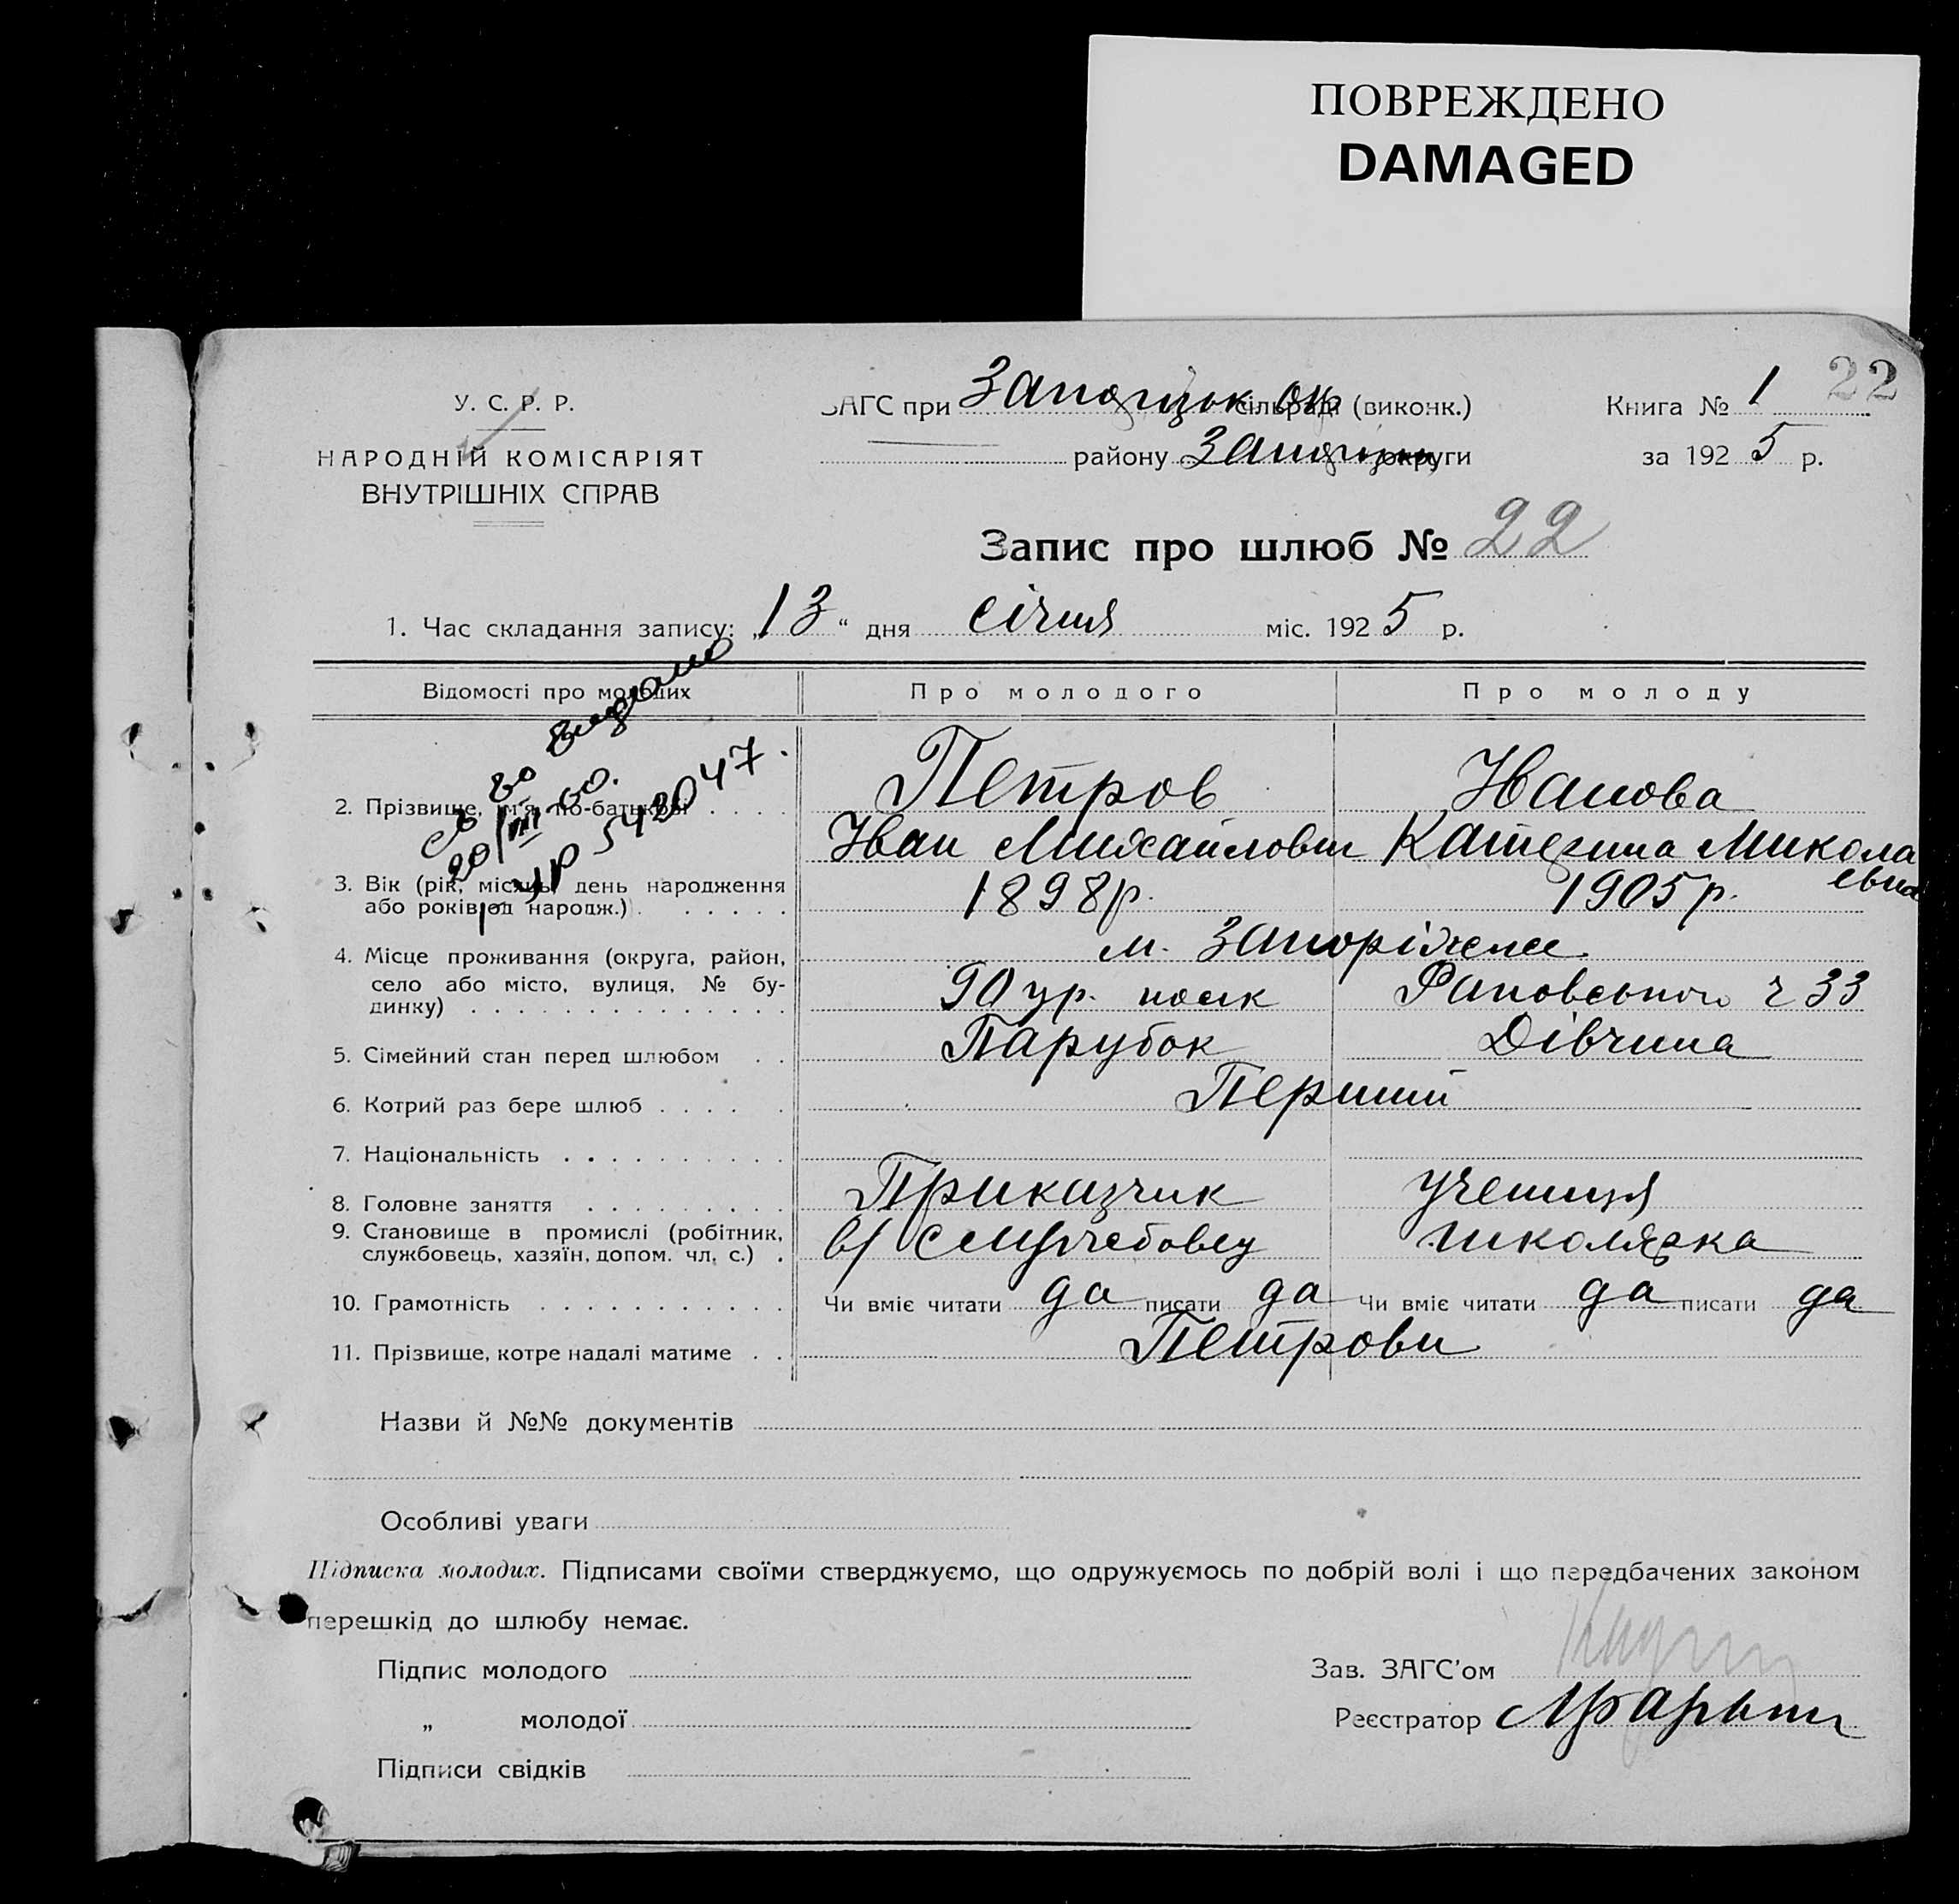 ПОВРЕЖДЕНО
DAMAGED
22
У. С. Р. Р.
НАРОДНІЙ КОМІСАРІЯТ
ВНУТРІШНІХ СПРАВ
ЗАГС при сільраді (виконк.)
району округи
Книга № 1
за 1925 р.
Запис про шлюб № 22
1. Час складання запису: „13“ дня січня міс. 1925 р.
Відомості про молодих Про молодого Про молоду
Св во видано
20/III-60.
УР 542047.
2. Прізвище, ім'я, по-батькові . . . . Петров Иванова
Иван Михайлович Катерина Микола
євна
3. Вік (рік, місяць, день народження
або років од народж.) . . . . . . 1898р. 1905р.
4. Місце проживання (округа, район, м. Запоріжже
село або місто, вулиця, № бу-
динку) . . . . . . . . . . . . . . 33
5. Сімейний стан перед шлюбом . . Парубок Дівчина
6. Котрий раз бере шлюб . . . . . Перший
7. Національність . . . . . . . . . .
8. Головне заняття . . . . . . . . . Приказчик учениця
9. Становище в промислі (робітник,
службовець, хазяїн, допом. чл. с.) . школярка
10. Грамотність . . . . . . . . . . . Чи вміє читати да писати да Чи вміє читати да писати да
11. Прізвище, котре надалі матиме . . Петрови
Назви й №№ документів
Особливі уваги
Підписка молодих. Підписами своїми стверджуємо, що одружуємось по добрій волі і що передбачених законом
перешкід до шлюбу немає.
Підпис молодого
„ молодої
Підписи свідків
Зав. ЗАГС'ом
Реєстратор